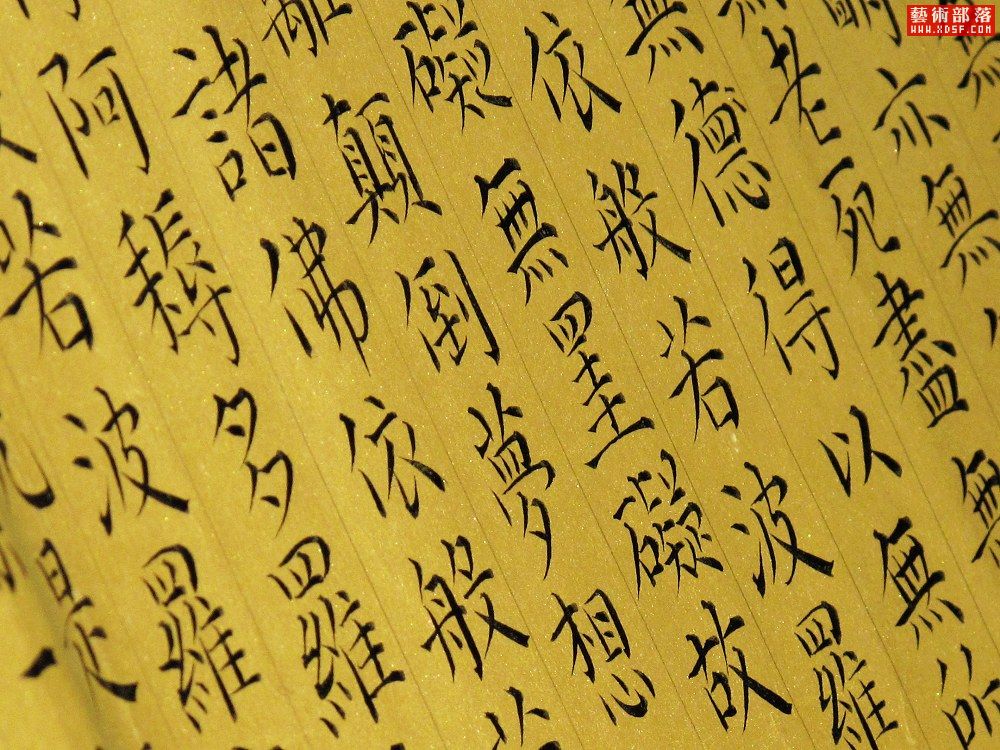 藝術部落
WWW.XDSF.COM
無
明亦無
老死盡無
無德得以無所
依般若波羅
礙無罣礙故
離顛倒夢想
諸佛依般若
阿耨多羅
若波羅
是